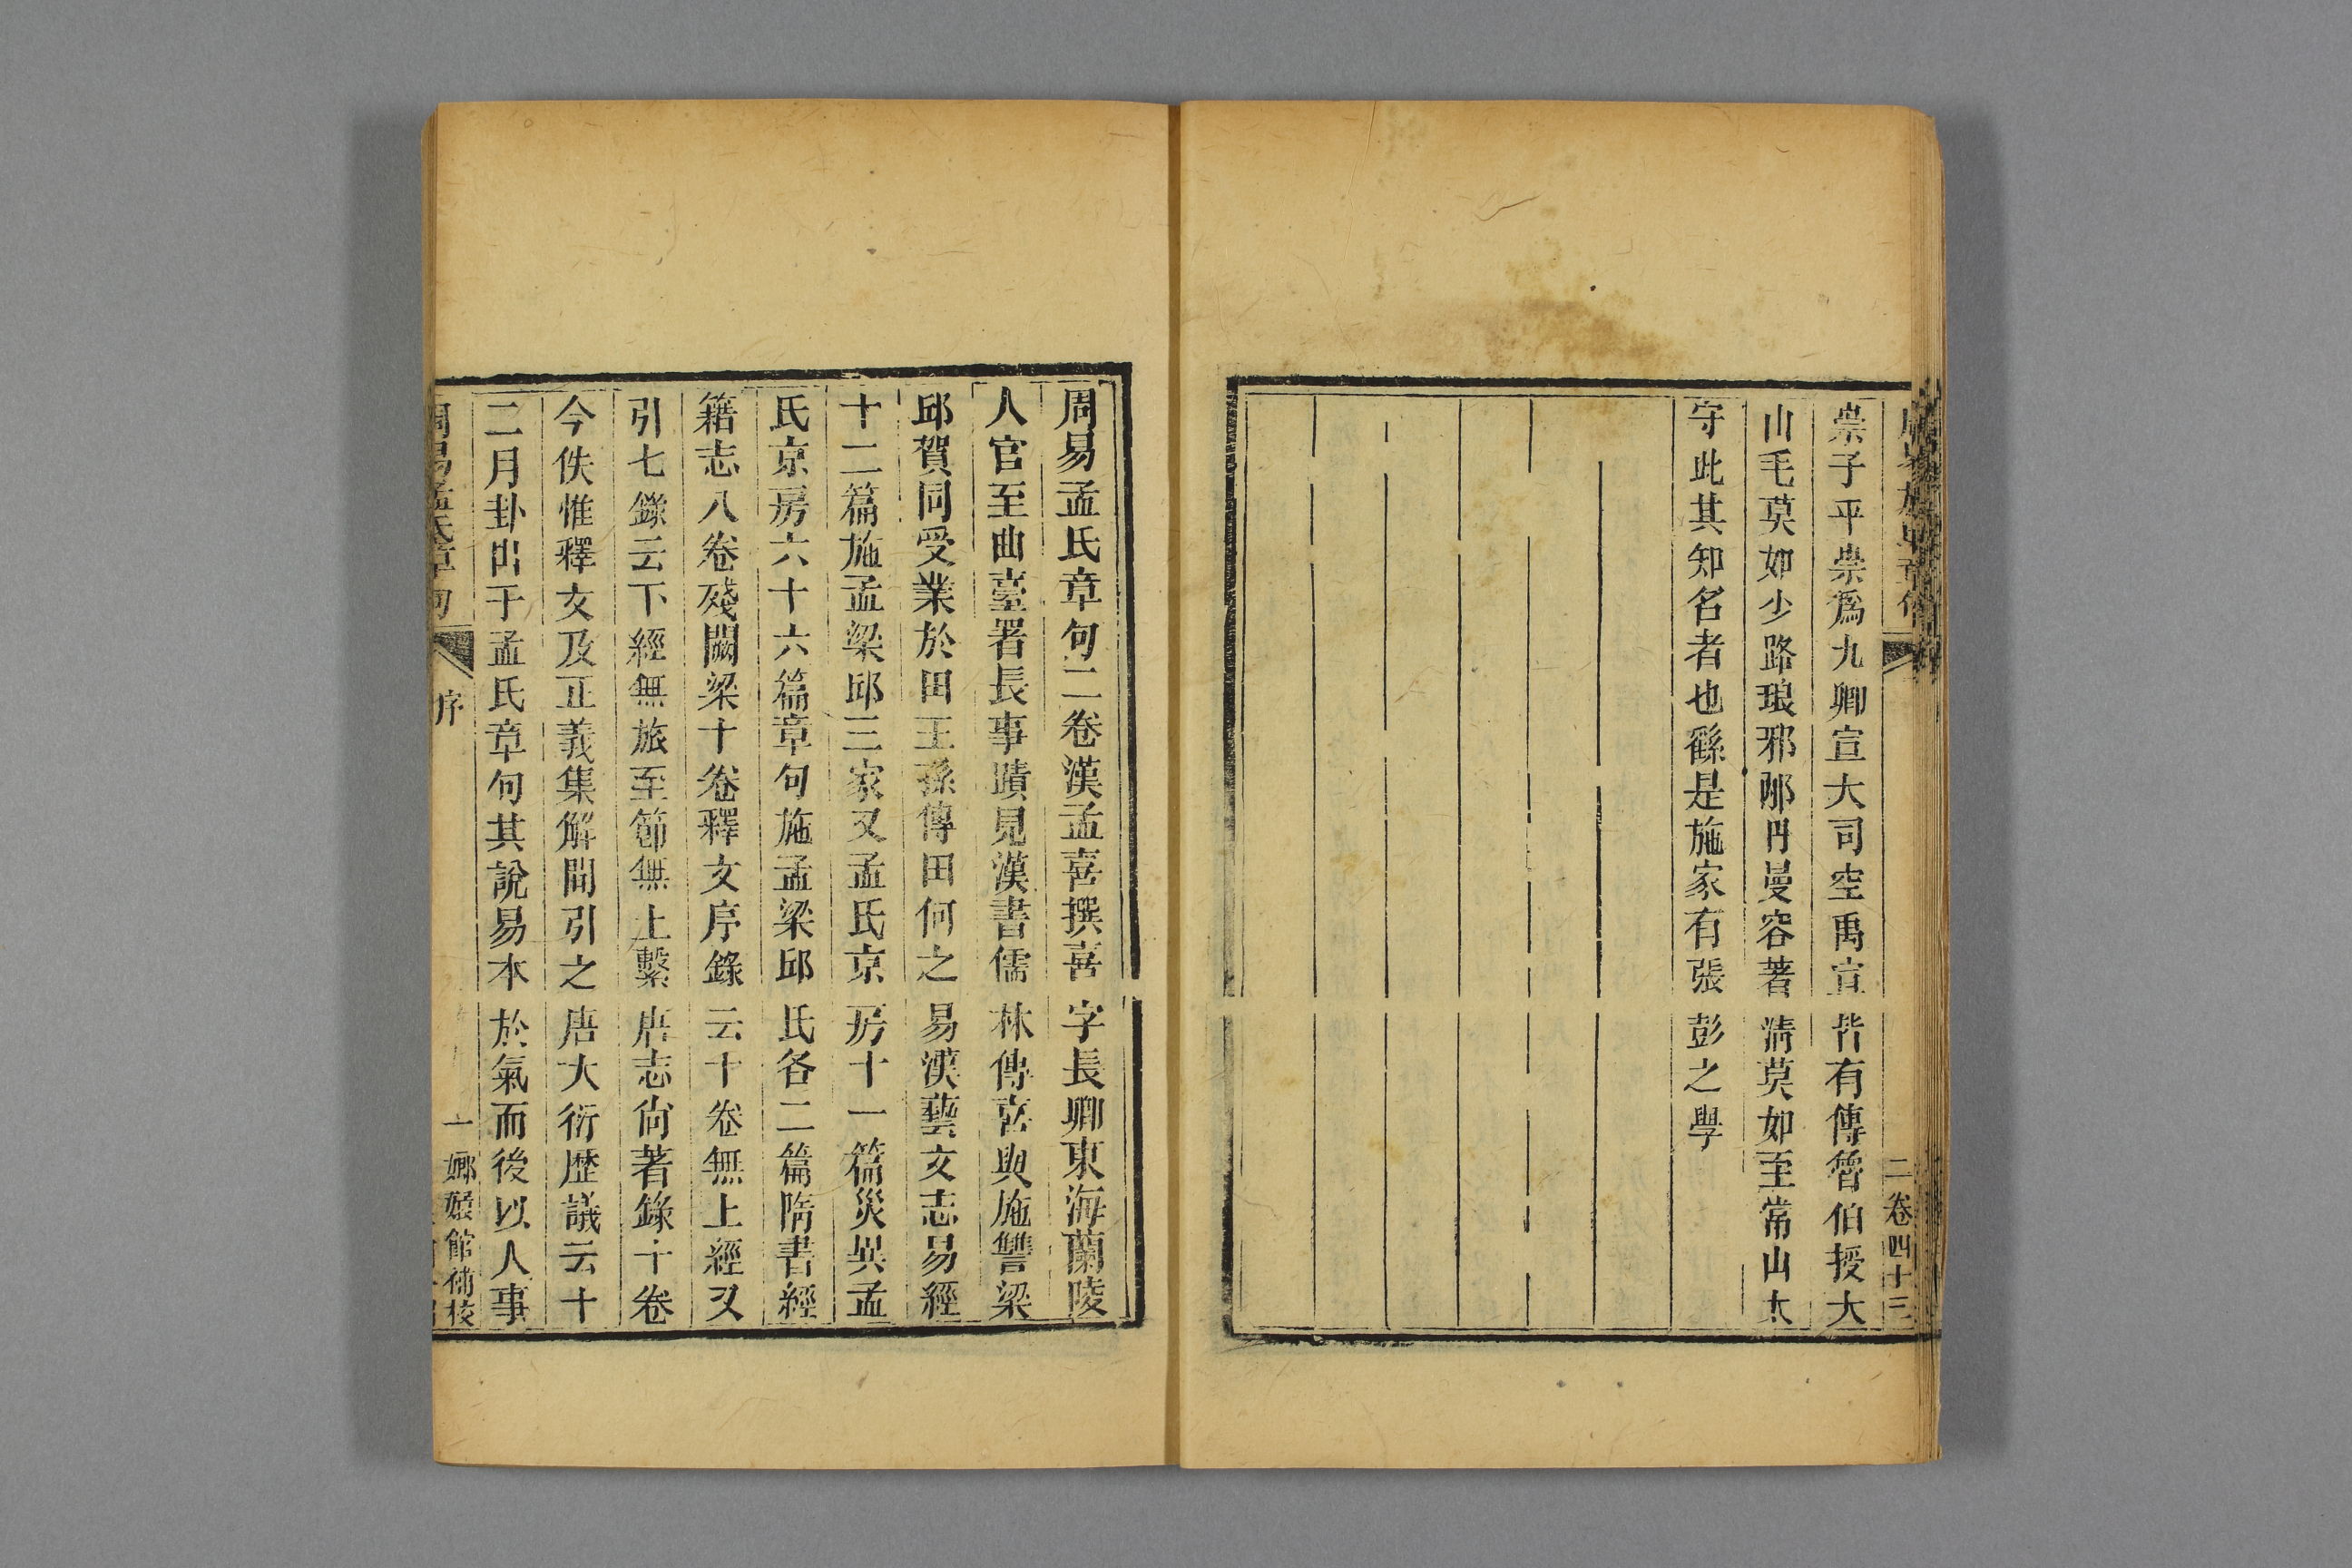 崇子平崇爲九卿宣大司空禹宣皆有傳魯伯授大
山毛莫如少路琅邪邴丹曼容著淸莫如至常山太
守此其知名者也繇是施家有張彭之學
二卷四十三
周易孟氏章句二卷漢孟喜撰喜字長卿東海蘭陵
人官至曲臺署長事蹟見漢書儒林傳喜與施讐梁
邱賀同受業於田王孫傳田何之易漢藝文志易經
十二篇施孟梁邱三家又孟氏京房十一篇災異孟
氏京房六十六篇章句施孟梁邱氏各二篇隋書經
籍志八卷殘闕梁十卷釋文序錄云十卷無上經又
引七錄云下經無旅至節無上繫唐志尙著錄十卷
今佚惟釋文及正義集解間引之唐大衍歷議云十
二月卦出于孟氏章句其說易本於氣而後以人事
周易孟氏章句 序 一 嫏嬛館補校